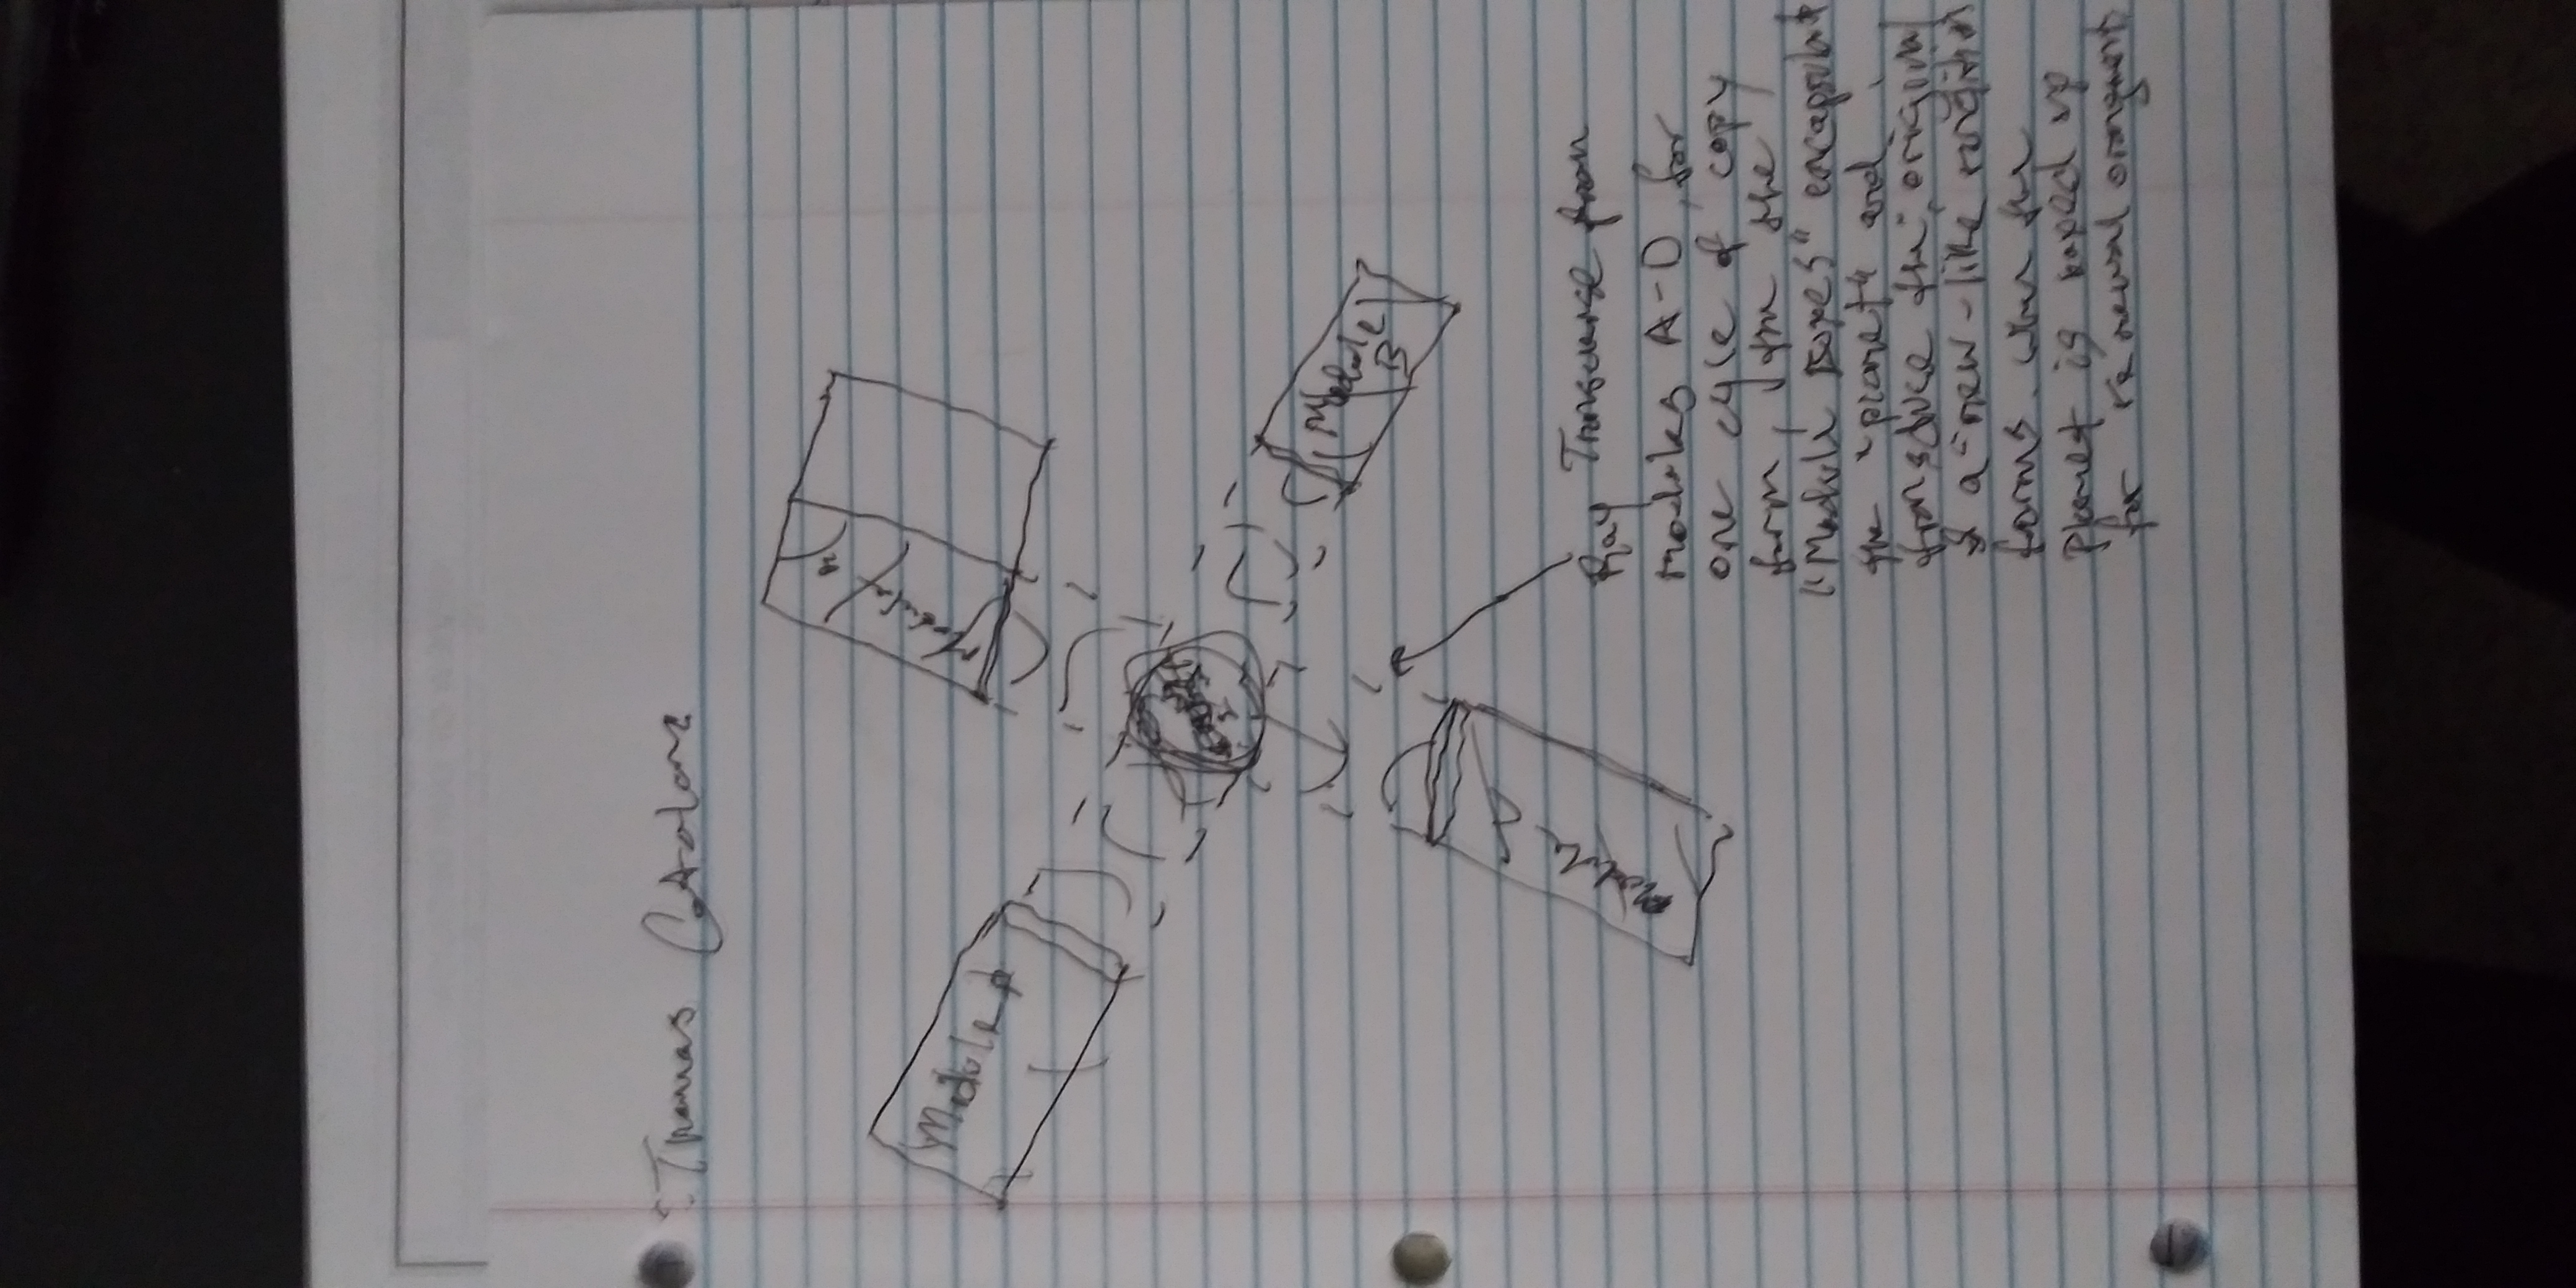 Thomas Catalano
Module A
Module
Module
B
Module
Ray Transverse from
modules A-D, for
one cycle of copy
form, the
"Module Boxes" encapsulat
the "planet" and
transduce the original
& a new-like rendition
forms. when the
planet is boxed up
for renewal